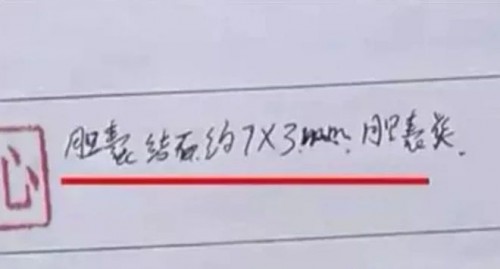 心
胆囊结石约7X3mm.胆囊炎.